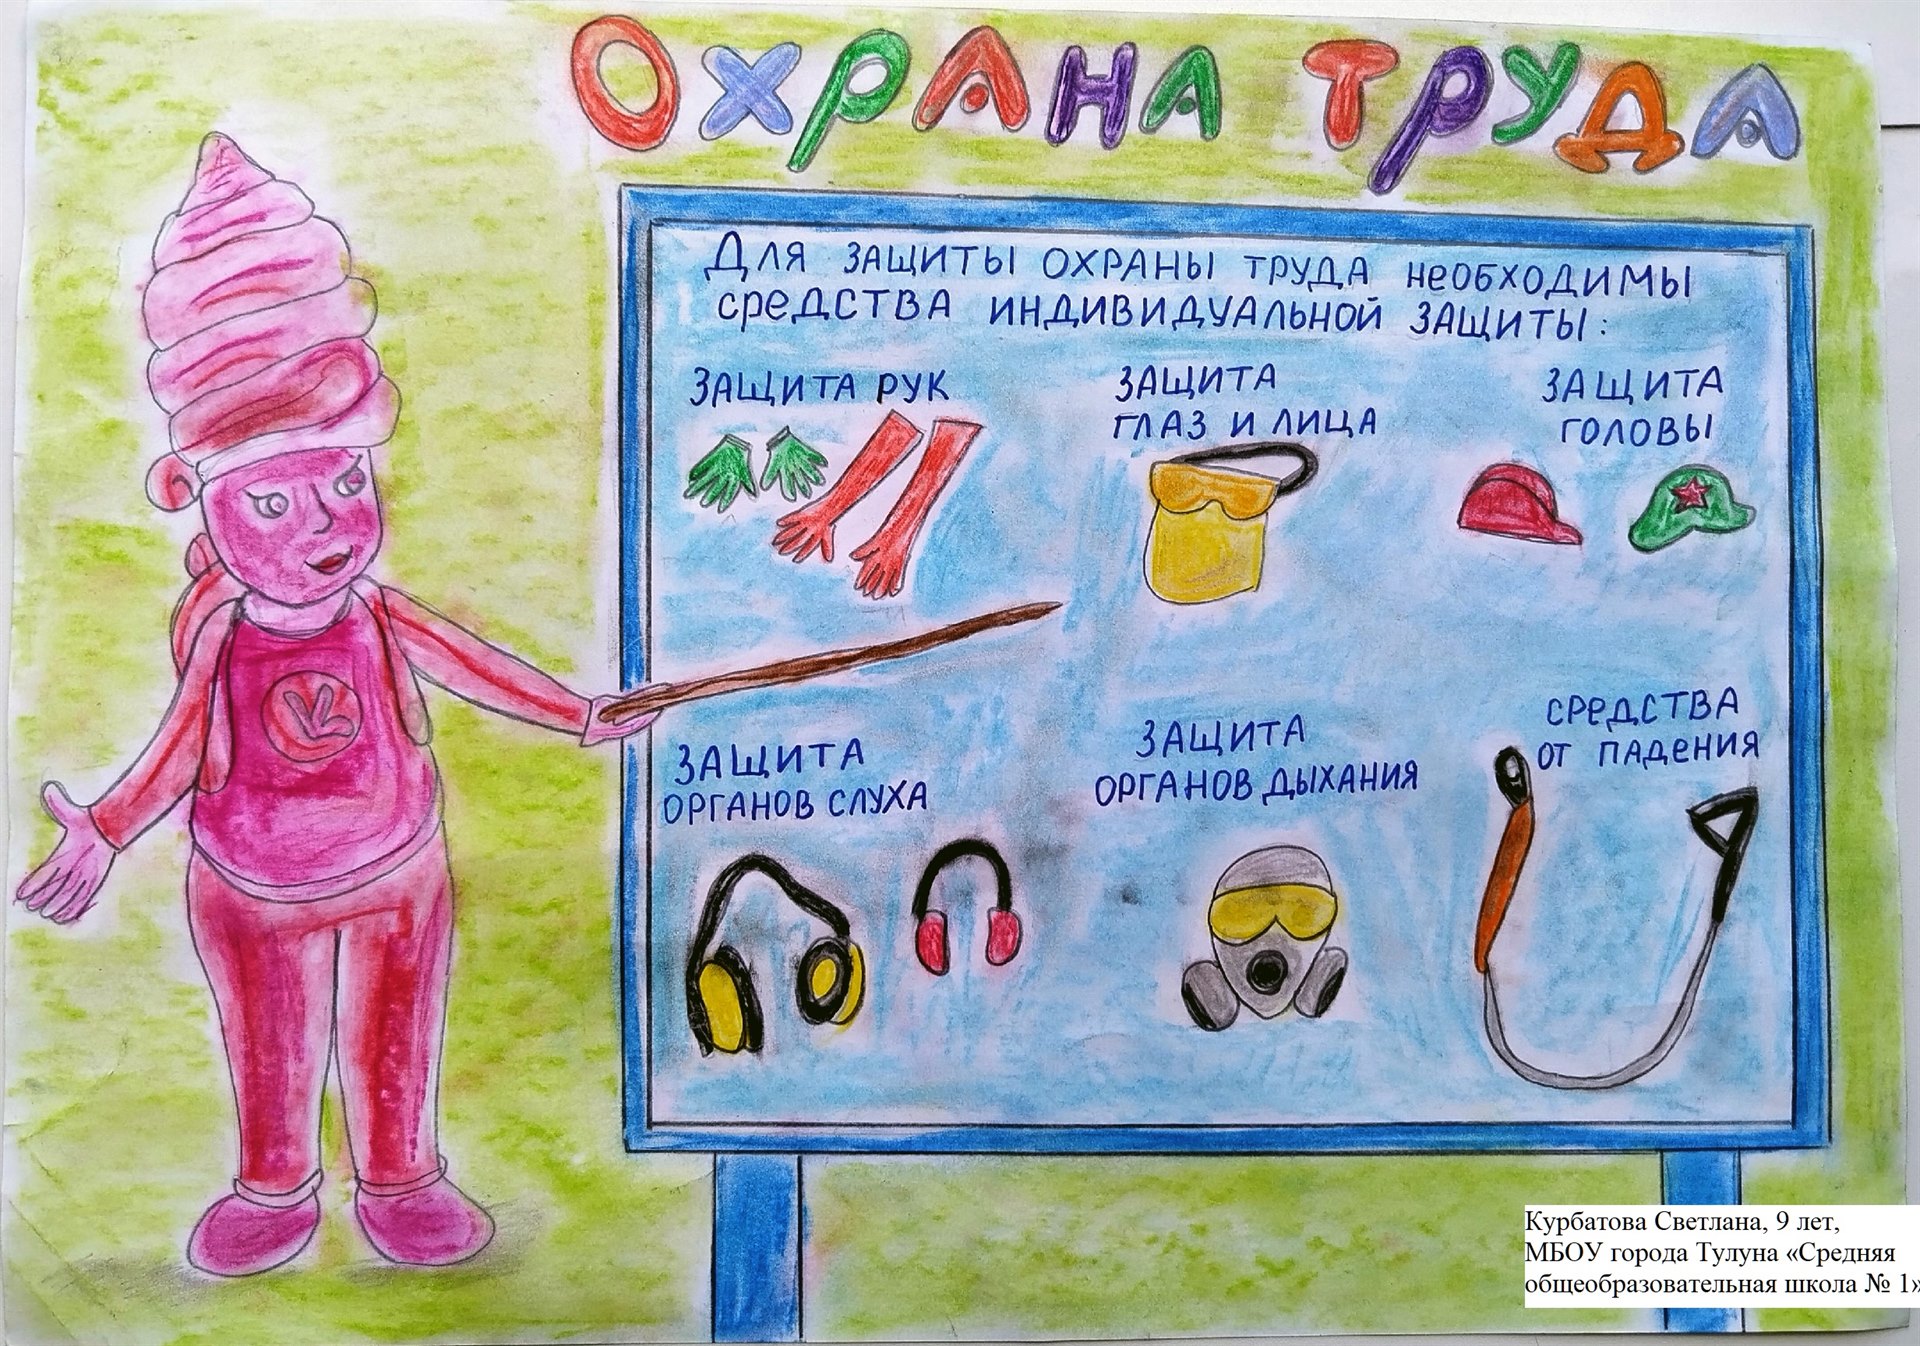 ОХРАНА ТРУДА
Для защиты охраны труда необходимы
средства индивидуальной защиты:
ЗАЩИТА РУК
ЗАЩИТА
ГЛАЗ И ЛИЦА
ЗАЩИТА
ГОЛОВЫ
ЗАЩИТА
ОРГАНОВ СЛУХА
ЗАЩИТА
ОРГАНОВ ДЫХАНИЯ
СРЕДСТВА
ОТ ПАДЕНИЯ
Курбатова Светлана, 9 лет,
МБОУ города Тулуна «Средняя
общеобразовательная школа № 1»